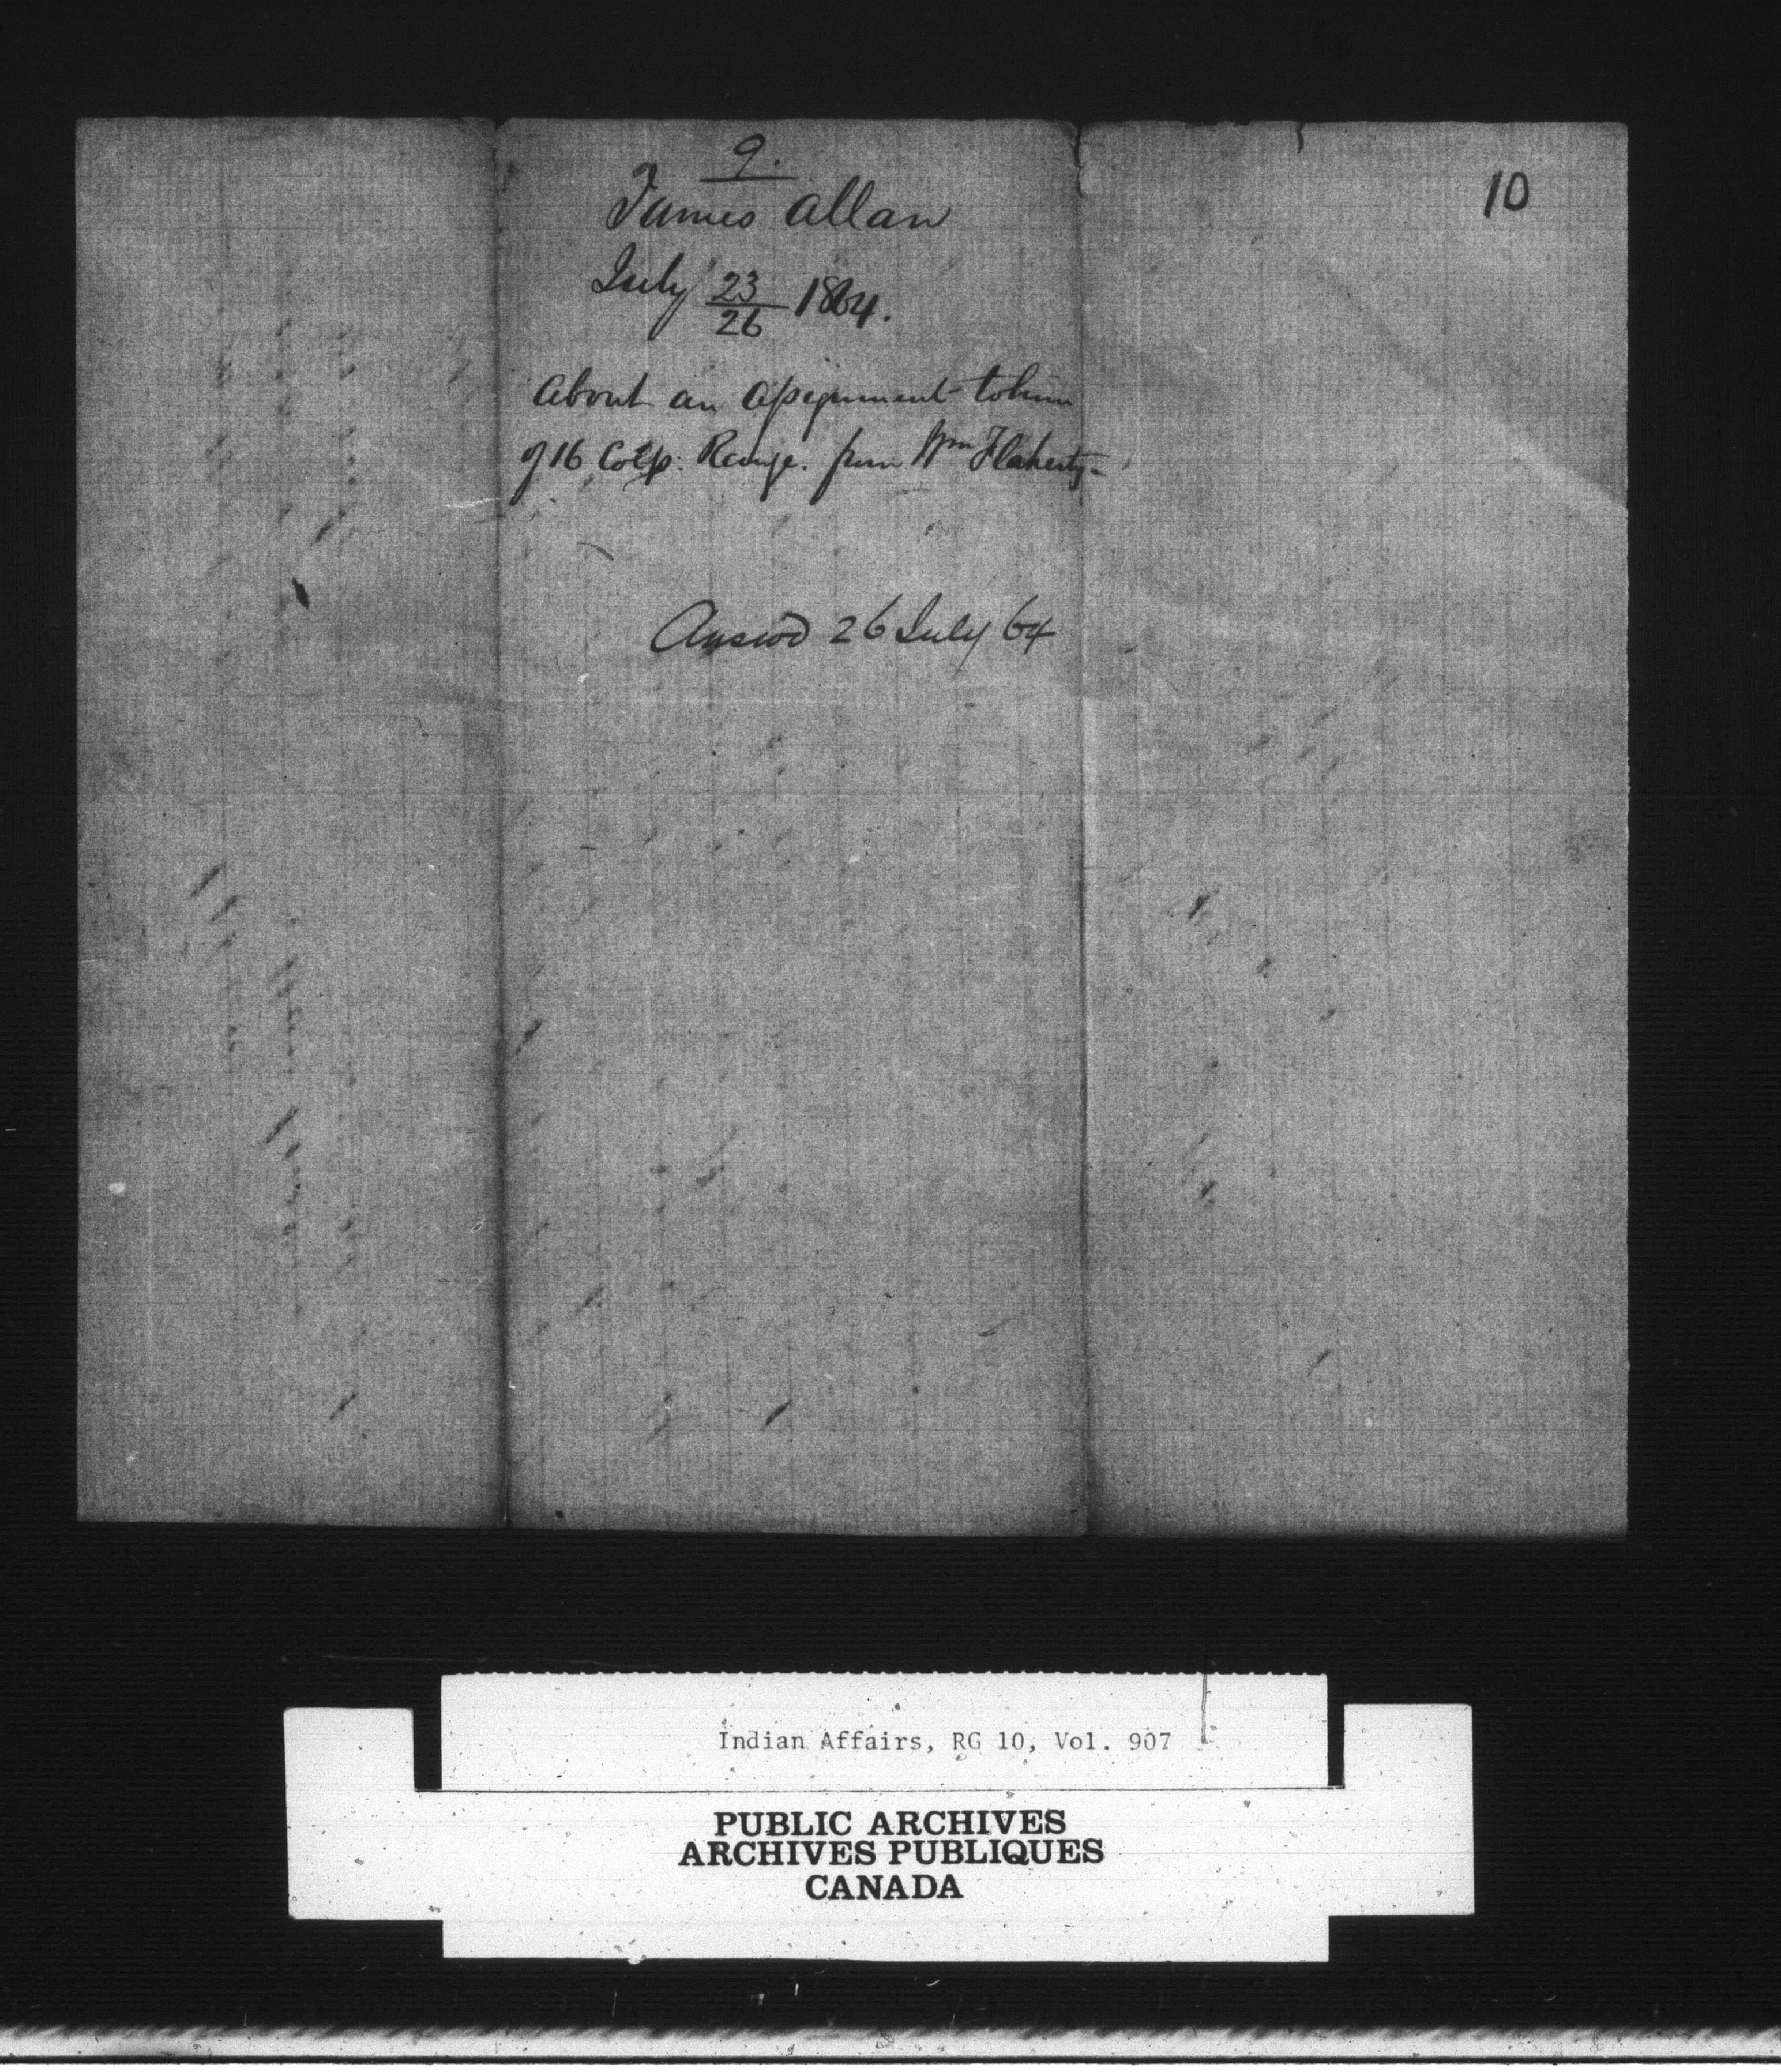 9.
10
James Allan
July 23/26 1864.
About an assignment to him
of 16 Co Rd Range. from Wm Flaherty-
Answd 26 July 64
Indian Affairs, RG 10, Vol. 907
PUBLIC ARCHIVES
ARCHIVES PUBLIQUES
CANADA